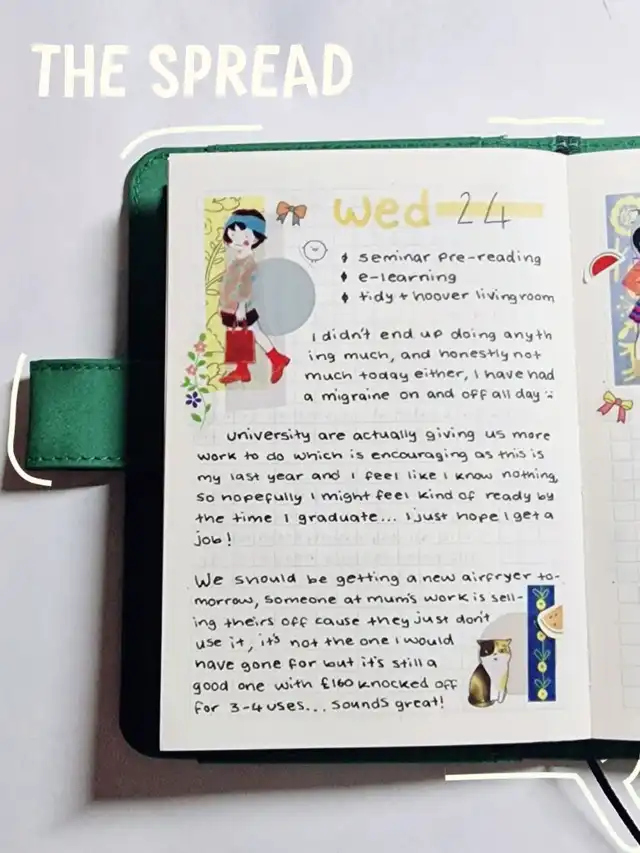 THE SPREAD
wed 24
seminar pre-reading
e-learning
tidy + hoover livingroom
I didn't end up doing anyth
ing much, and honestly not
much today either, I have had
a migraine on and off all day :(
university are actually giving us more
work to do which is encouraging as this is
my last year and I feel like I know nothing,
so hopefully I might feel kind of ready by
the time I graduate... I just hope I get a
job!
We should be getting a new airfryer to-
morrow, someone at mum's work is sell-
ing theirs off cause they just don't
use it, it's not the one I would
have gone for but it's still a
good one with £160 knocked off
for 3-4 uses... sounds great!